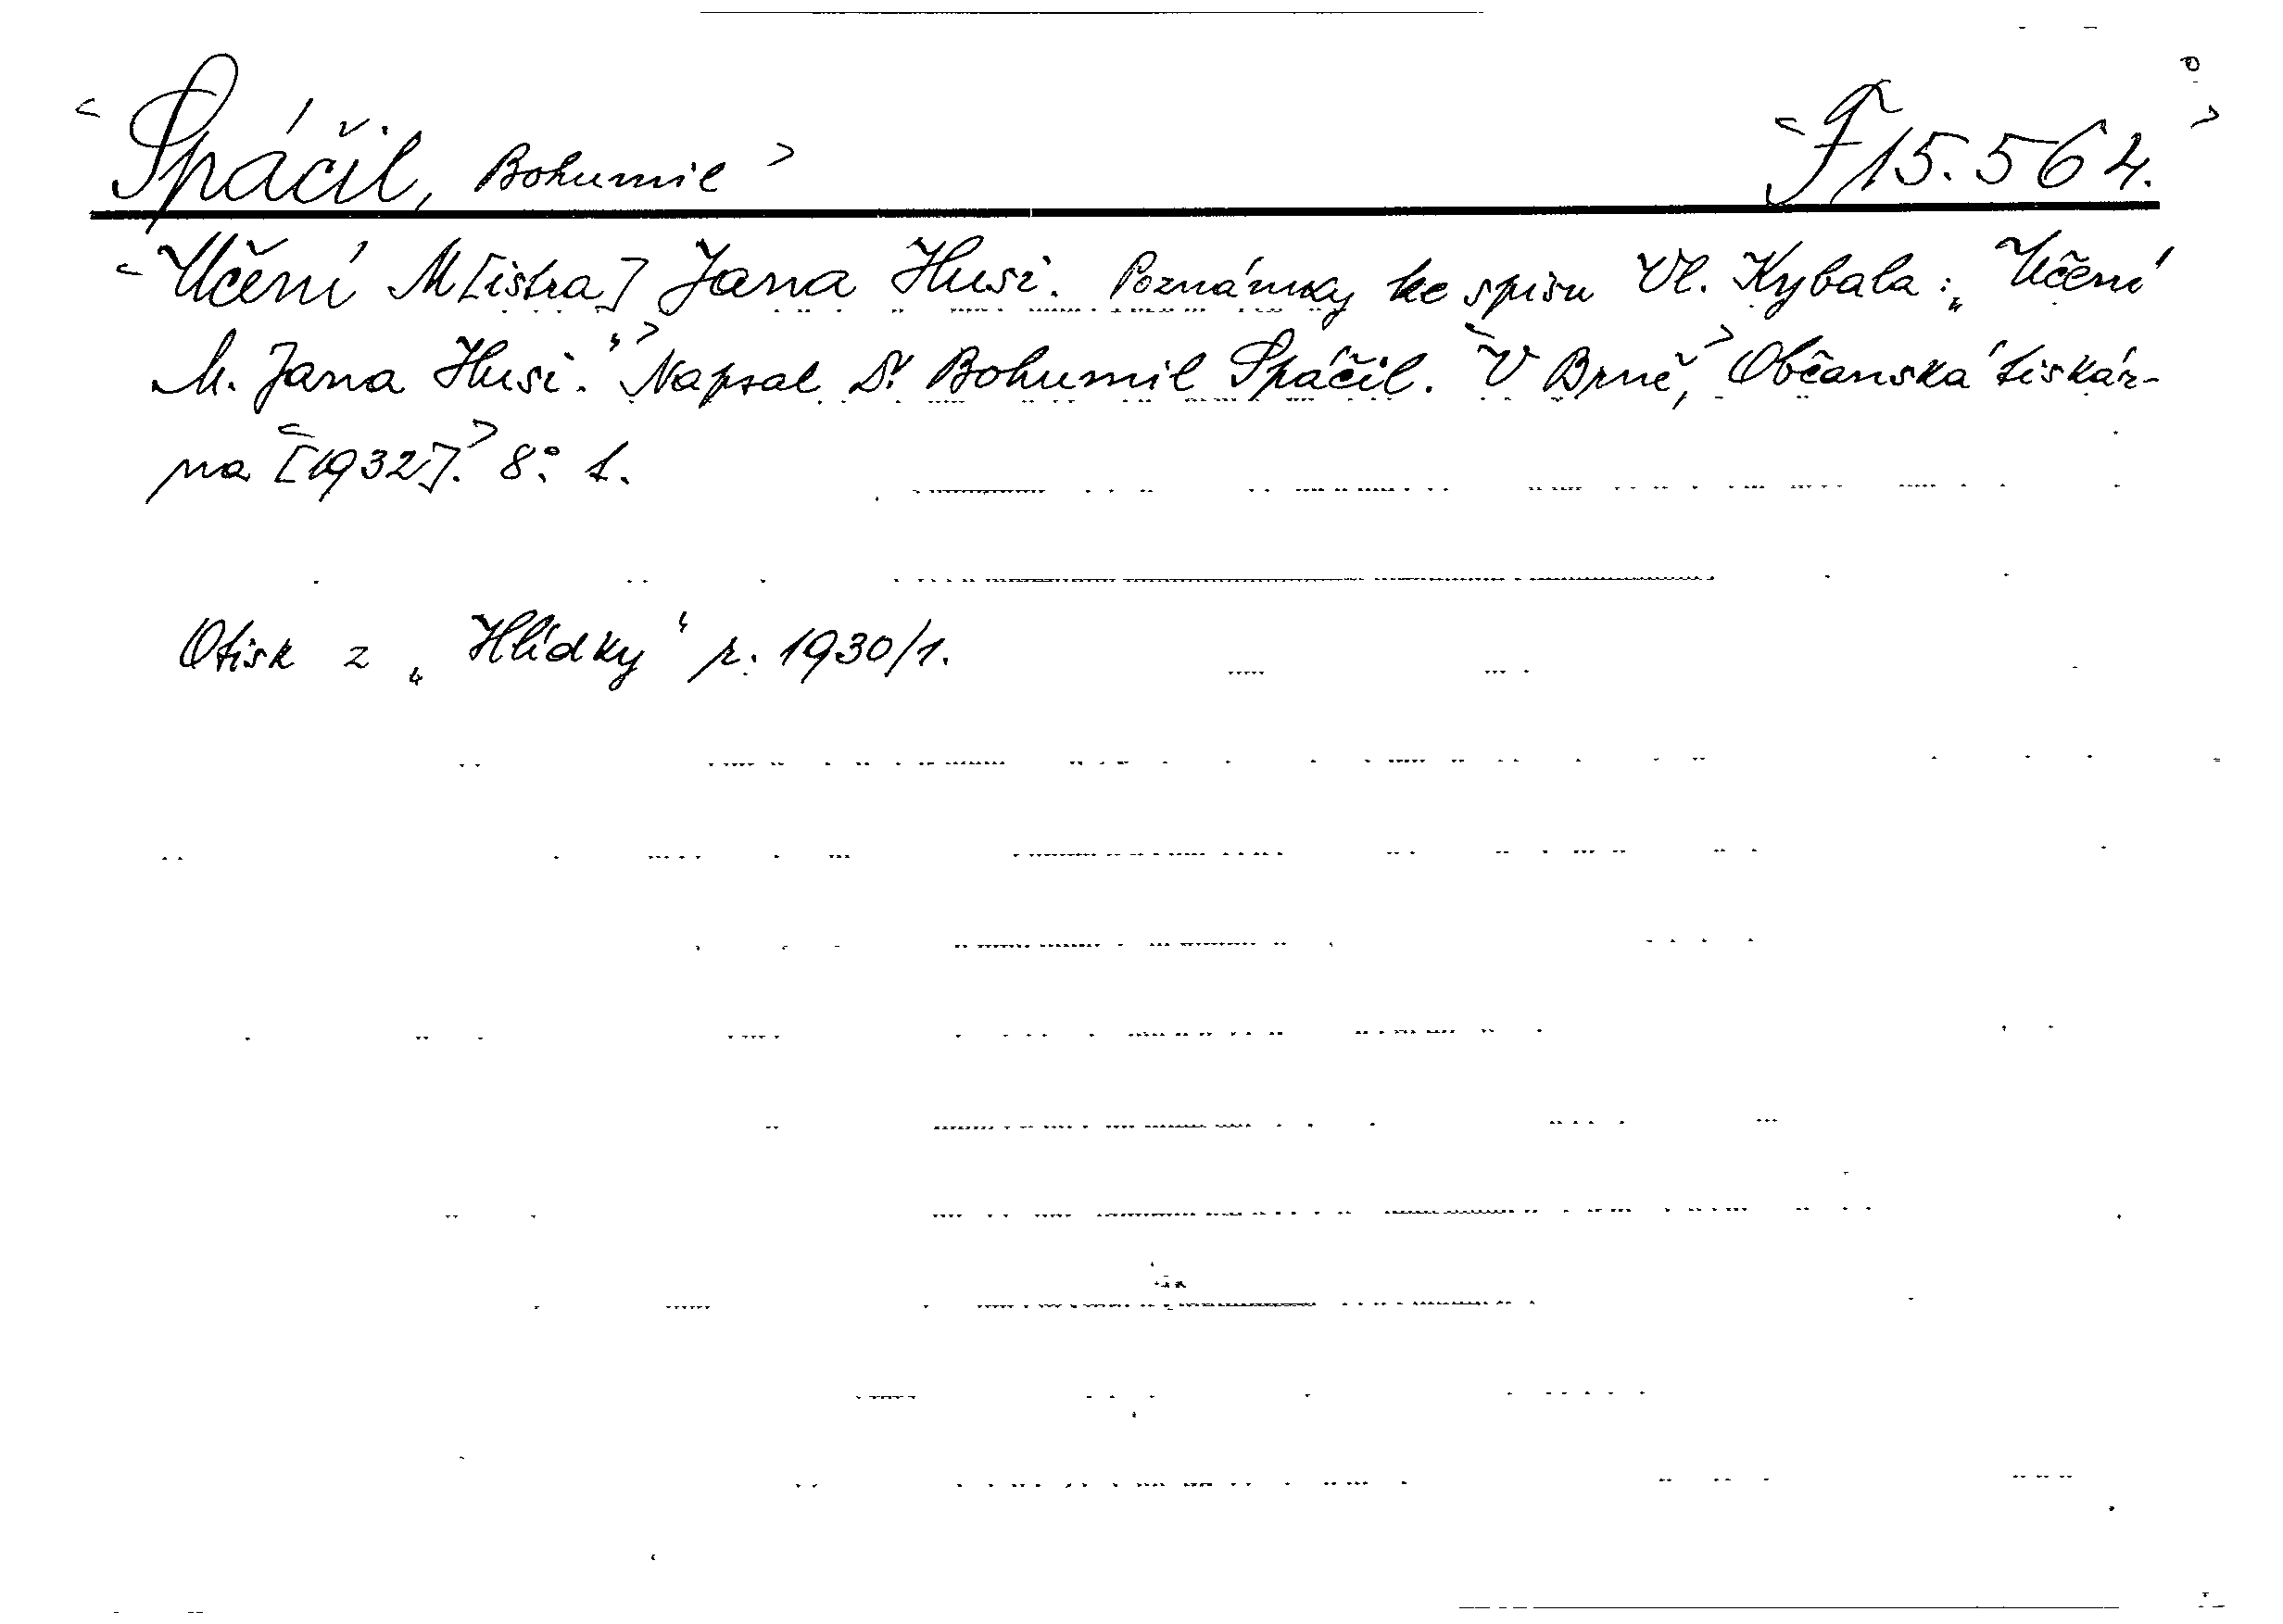 <Spáčil, Bohumil> <F 15.564.>
<Učení M[istra] Jana Husi. Poznámky ke spisu Vl. Kybala: „Učení
M. Jana Husi.“> Napsal Dr Bohumil Spáčil. <V Brně,> Občanská tiskár-
na <[1932].> 8°. 1.
Otisk z „Hlídky“ r. 1930/1.